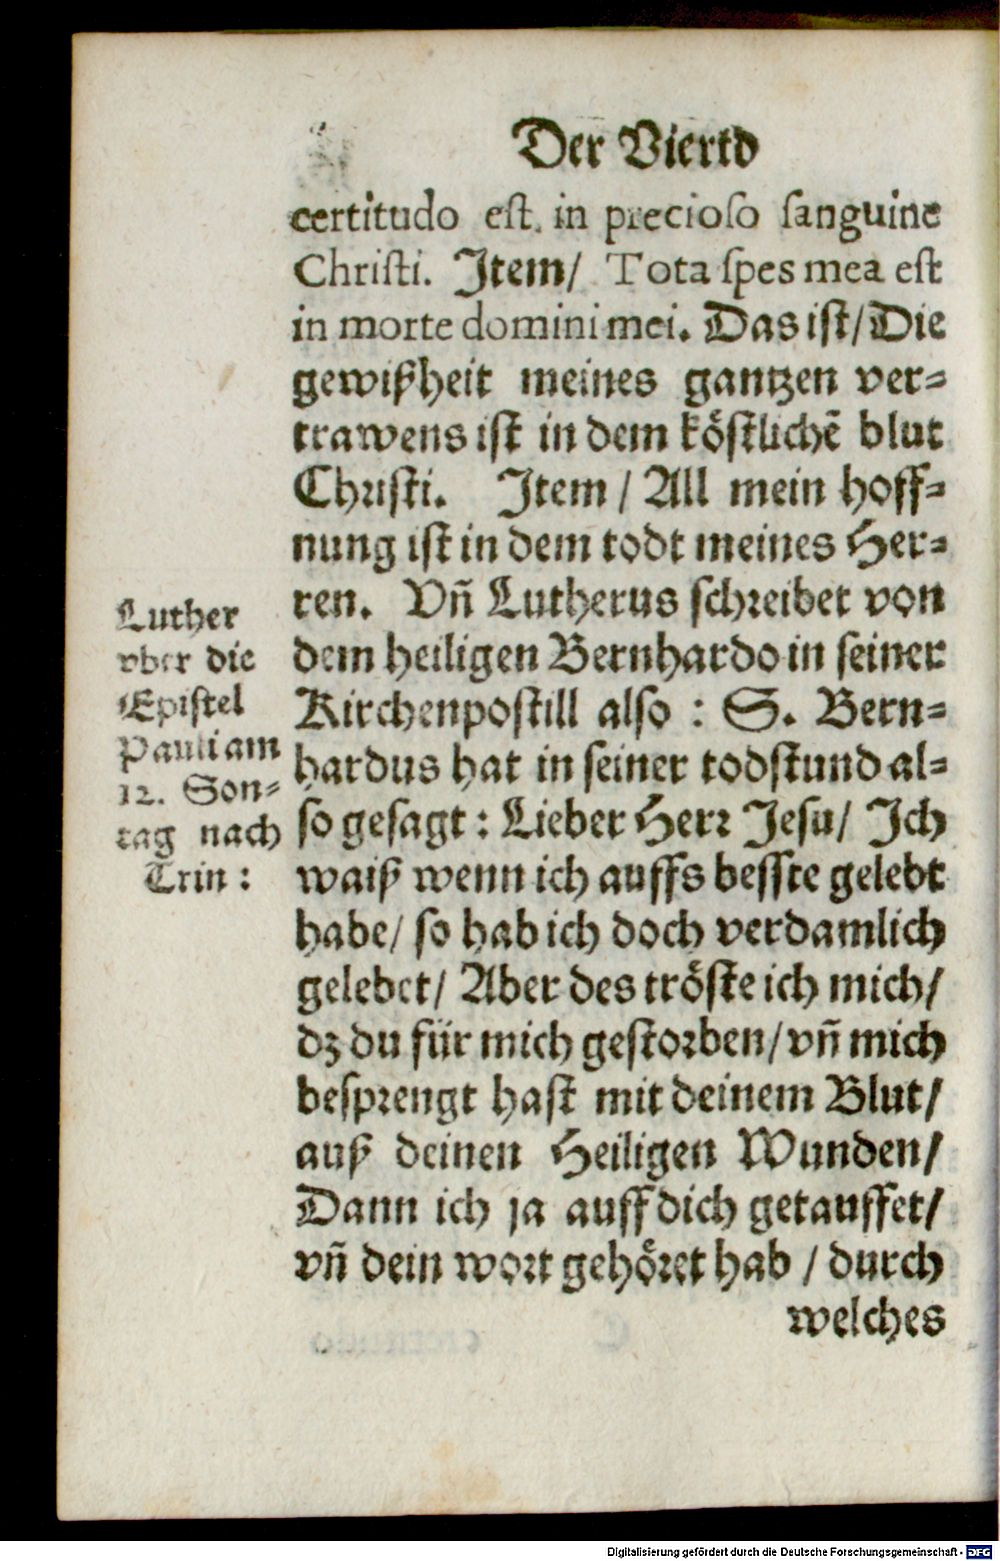 Der Viertd
certitudo eſt in precioſo ſanguine
Chriſti. Item/ Tota ſpes mea eſt
in morte domini mei. Das iſt/Die
gewißheit meines gantzen ver⸗
trawens iſt in dem köſtlichē blut
Chriſti. Item / All mein hoff⸗
nung iſt in dem todt meines Her⸗
ren. Vñ Lutherus ſchreibet von
dem heiligen Bernhardo in ſeiner
Kirchenpoſtill alſo : S. Bern⸗
hardus hat in ſeiner todſtund al⸗
ſo geſagt : Lieber Herr Jeſu/ Ich
waiß wenn ich auffs beſſte gelebt
habe/ ſo hab ich doch verdamlich
gelebet/ Aber des tröſte ich mich/
dz du für mich geſtorben/vñ mich
beſprengt haſt mit deinem Blut/
auß deinen Heiligen Wunden/
Dann ich ja auff dich getauffet/
vñ dein wort gehöret hab / durch
welches
Luther
vber die
Epiſtel
Pauli am
12. Son⸗
tag nach
Trin :
Digitalisierung gefördert durch die Deutsche Forschungsgemeinschaft - DFG